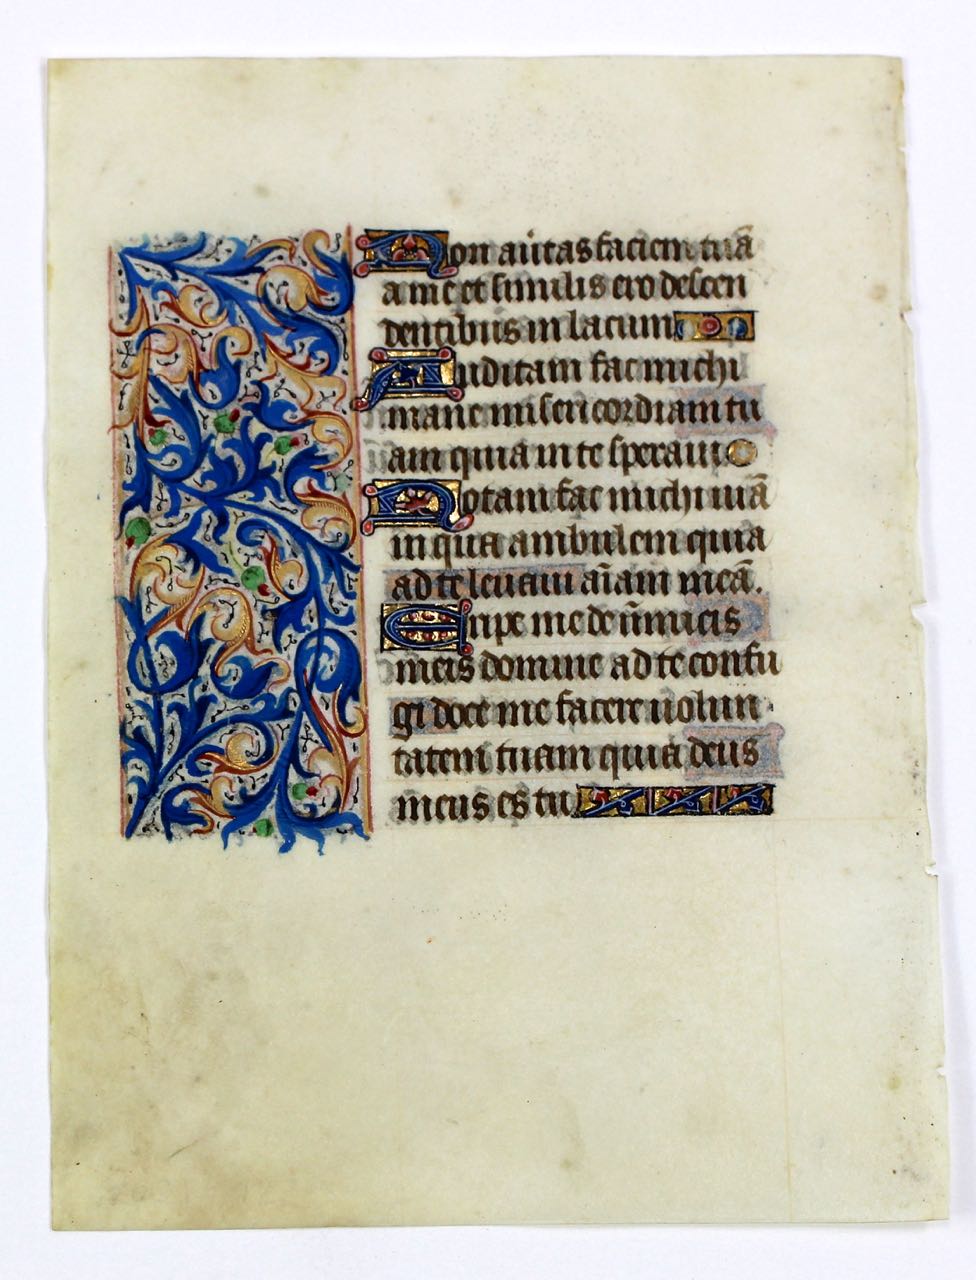 Non au᷑tas faciem tuā
a me et similis ero descen
dentibus in lacum
Auditam fac michi
mane misericordiam tu
am quia in te speraui
Notam fac michi uiā
in qua ambulem quia
ad te leuaui aīam meā.
Eripe me de īnimicis
meis domine ad te confu
gi doce me facere uolun
tatem tuam quia deus
meus es tu